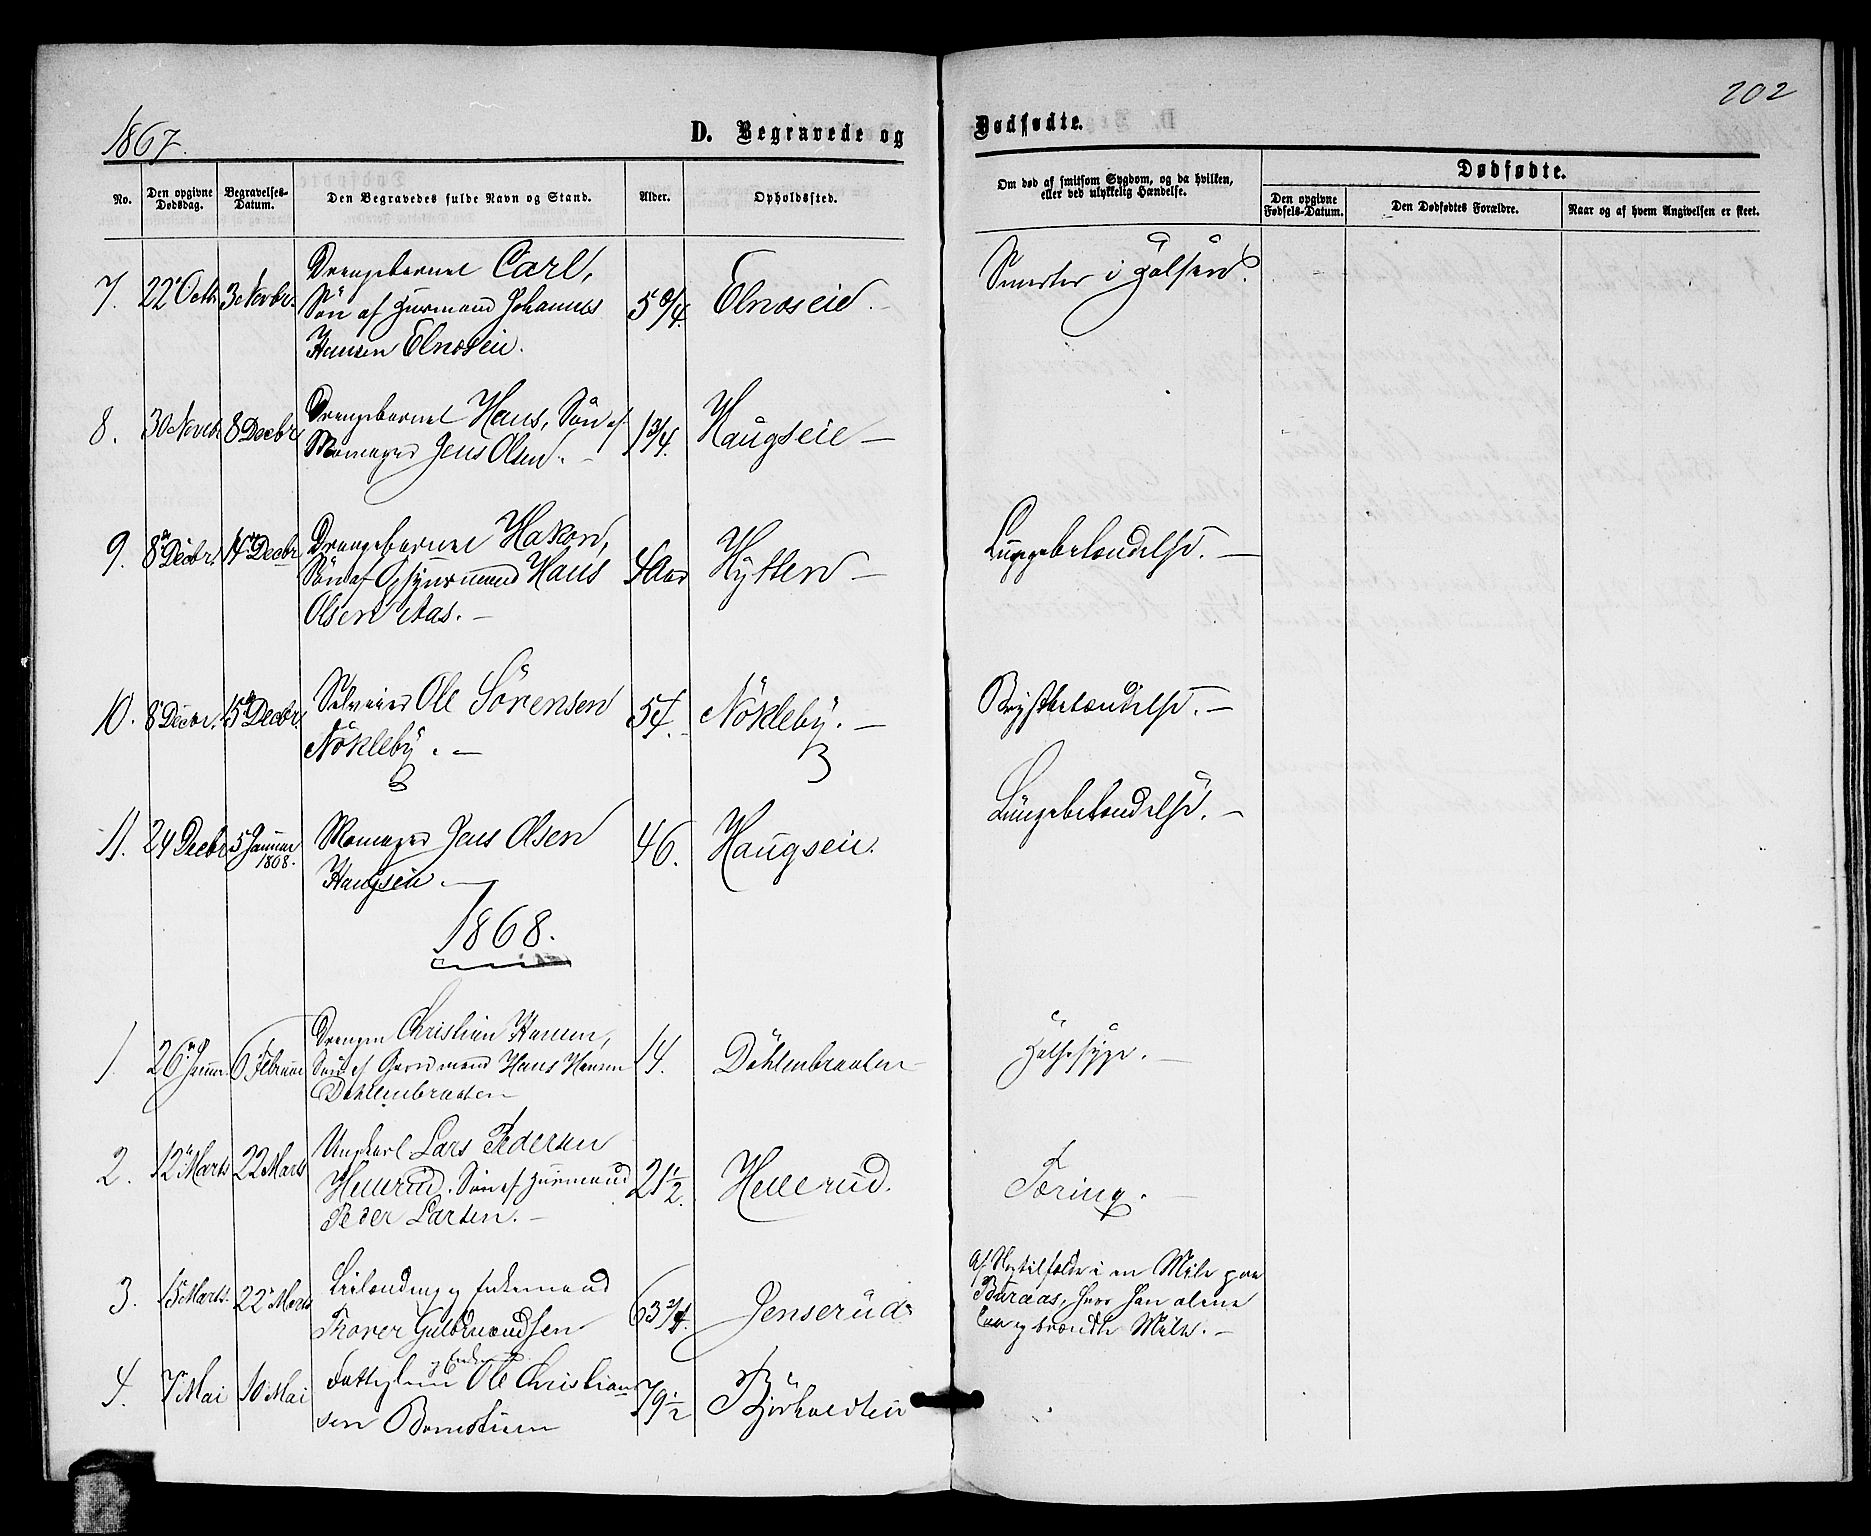 202
1867.
D. Begravede og
Dødfødte.
No.
Den opgivne Dødsdag.
Begravelses-Datum.
Den Begravedes fulde Navn og Stand.
Alder.
Opholdssted.
Om død af smitsom Sygdom, og da hvilken,
eller ved ulykkelig Hændelse.
Dødfødte.
Den opgivne Fødsels-Datum.
Den Dødfødtes Forældre.
Naar og af hvem Angivelsen er skeet.
7. 22 Octb 3 Novbr. Drengebarnet Carl,
Søn af Huusmand Johannes
Hansen Elnoseie.
5 Elnoseie.
Smerter i Halsen.
8. 30 Novbr. 8 Decbr. Drengebarnet Hans, Søn af
Jens Olsen.
1 3/4. Haugseie
9. 8de Decbr. 14de Decbr. Drengebarnet Hakon,
Søn af Hans
Olsen Aas.
4 Aar Hytten
Lungebetændelse.
10. 8 Decbr. 15de Decbr. Selveier Ole Sörensen
Nökleby.
54. Nökleby.
Brystbetændelse.
11. 24 Decbr 5 Januar
1868.
Jens Olsen
Haugseie.
46. Haugseie.
Lungebetændelse.
1868.
1. 26 Januar 6 Februar Drengen Christian Hansen,
Søn af Gaardmand Hans Hansen
Dahlenbraaten
14. Dahlenbraaten
Halssyge.
2. 12te Marts 22 Marts Ungkarl Lars Pedersen
Hellerud. Søn af Huusmand
Peder Larsen.
21 1/2. Hellerud.
Tæring.
3. 15 Marts. 22 Marts Leilænding og Enkemand
Thorer Gulbrandsen
63 3/4. Jenserud
i en Mile paa
Buraas, hvor han alene
laa og brændte Mile.
4. 7de Mai 10 Mai Fattiglem og Enkemand Ole Christian-
sen
79 1/2 Björholdteie